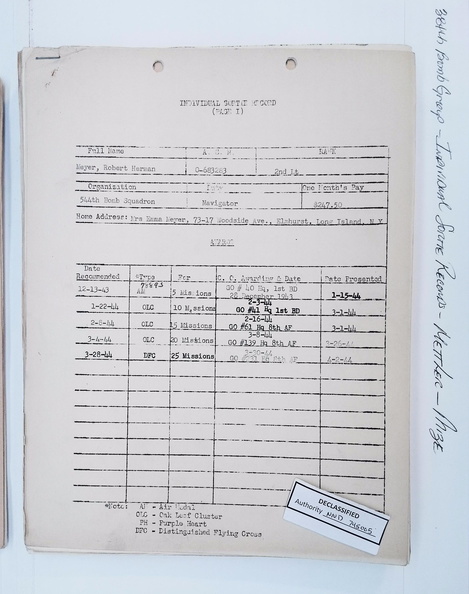 INDIVIDUAL SORTIE RECORD
(PAGE I)
Full Name A. S. N. RANK
Meyer, Robert Herman 0-683283 2nd Lt
Organization One Month's Pay
544th Bomb Squadron Navigator $247.50
Home Address: Mrs Emma Meyer, 73-17 Woodside Ave., Elmhurst, Long Island, N.Y.
AWARDS
Date Recommended *Type For G. O. Awarding & Date Date Presented
12-13-43 AM 5 Missions GO # 40 Hq, 1st BD 28 December 1943 1-15-44
1-22-44 OLC 10 Missions 2-3-44 GO #41 Hq 1st BD 3-1-44
2-8-44 OLC 15 Missions 2-16-44 GO #61 Hq 8th AF 3-1-44
3-4-44 OLC 20 Missions 3-8-44 GO #139 Hq 8th AF 3-26-44
3-28-44 DFC 25 Missions Hq 8th AF 4-2-44
*Note: AM - Air Medal
OLC - Oak Leaf Cluster
PH - Purple Heart
DFC - Distinguished Flying Cross
DECLASSIFIED
Authority NND 745005
384th Bomb Group - Individual Sortie Records - Mettler - Mize